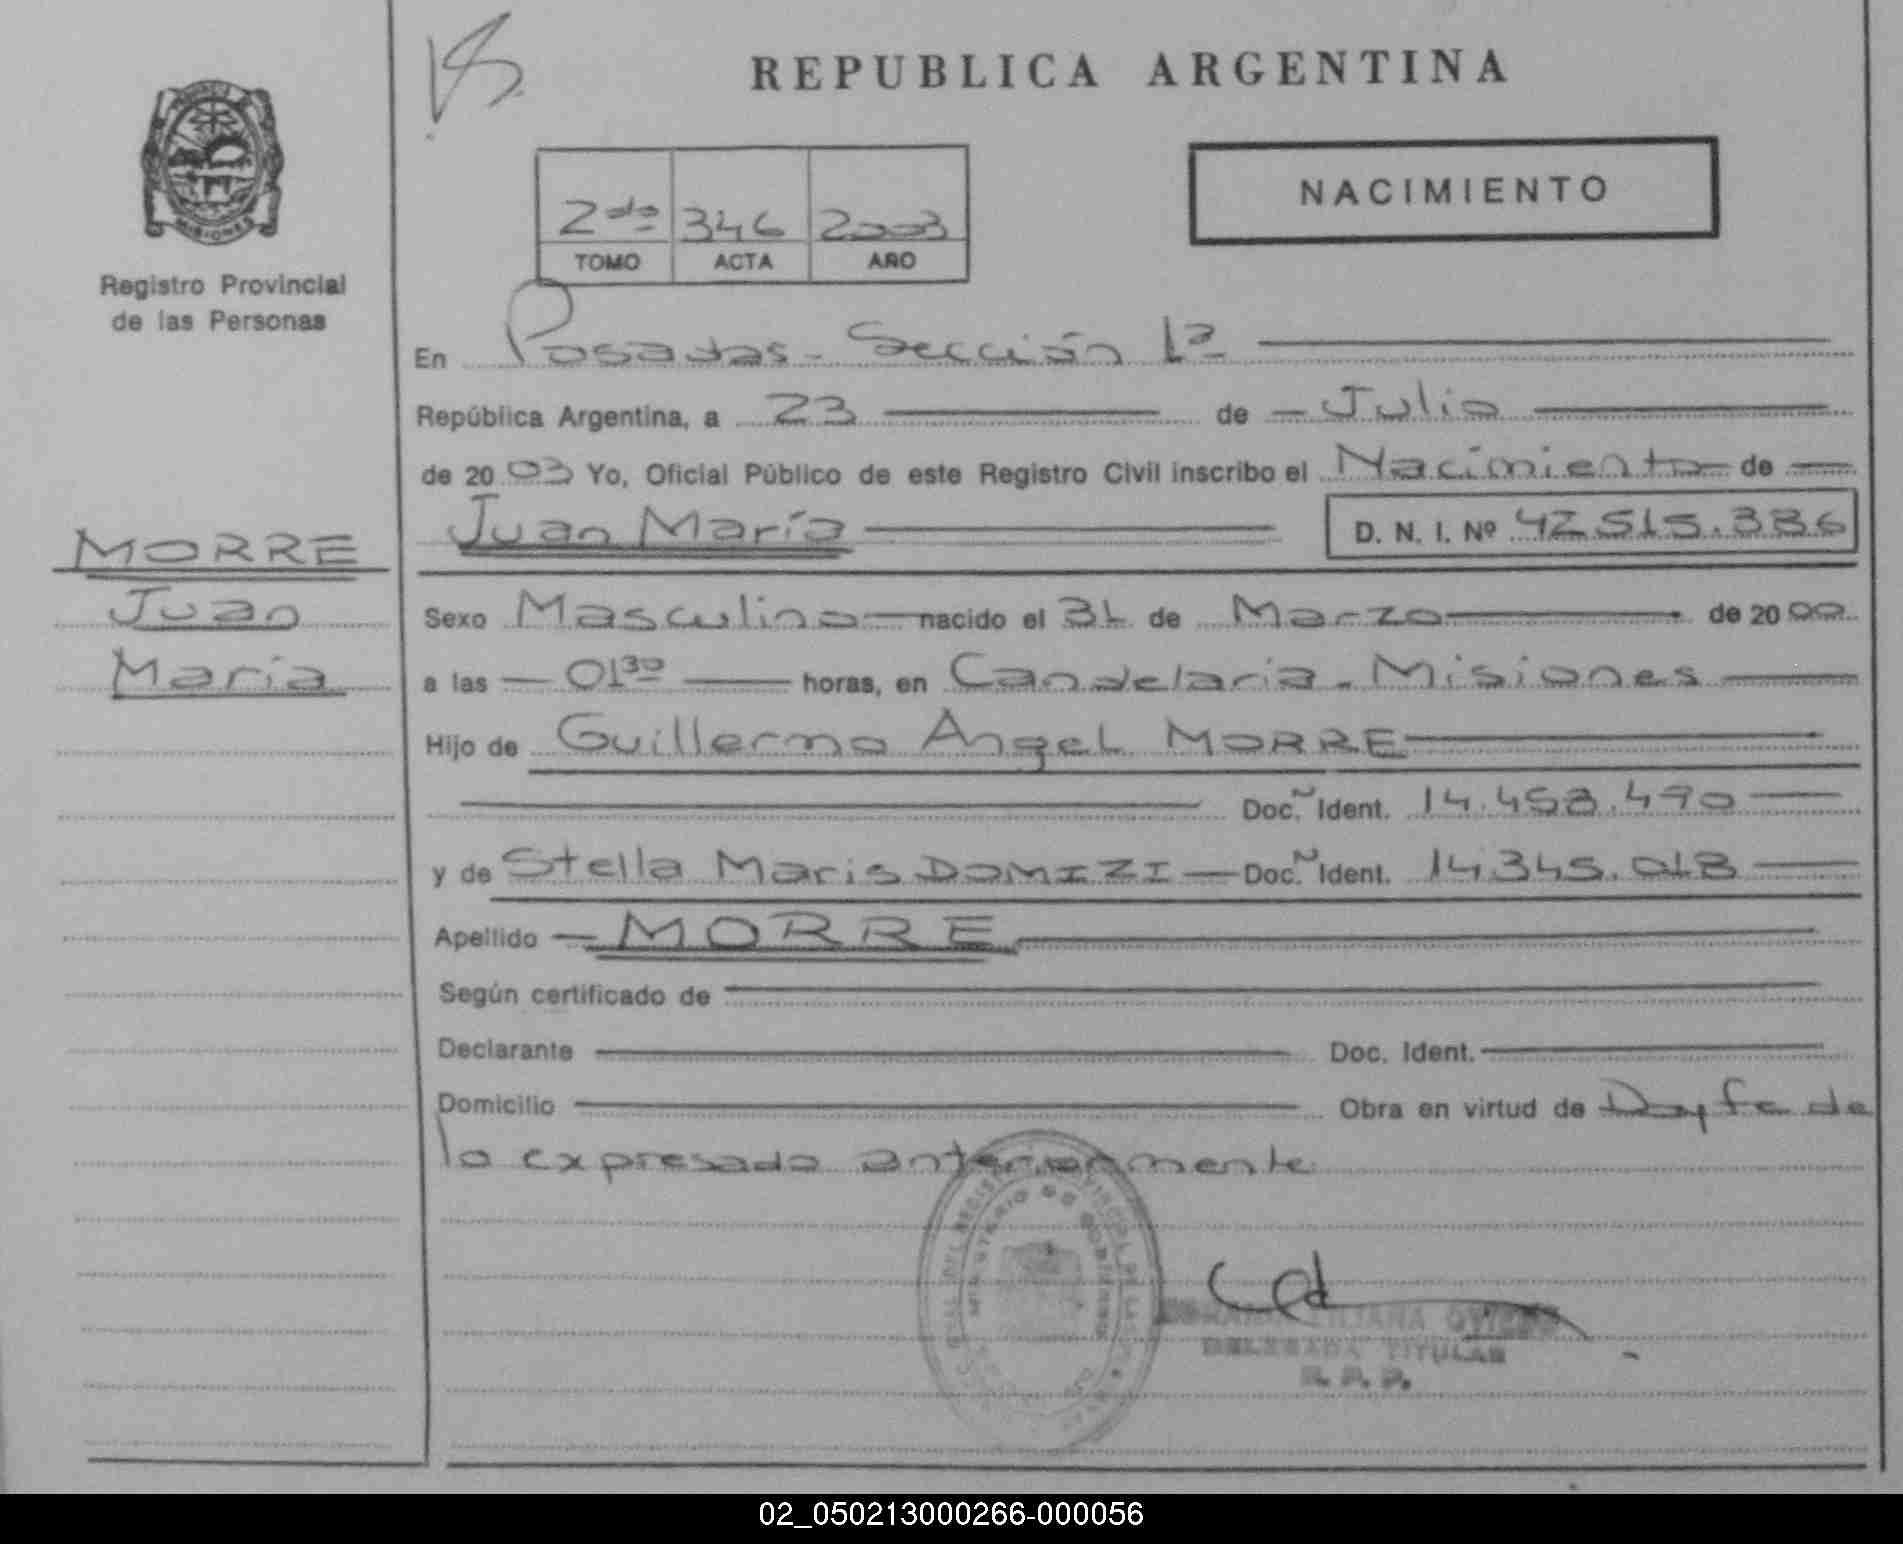 REPUBLICA ARGENTINA
MISIONES
Registro Provincial
de las Personas
2do 346 2003
TOMO ACTA AÑO
NACIMIENTO
En Posadas - Sección 1ª
República Argentina, a 23 de Julio
de 20 03 Yo, Oficial Público de este Registro Civil inscribo el Nacimiento de
Juan María D. N. I. Nº 42.515.386
MORRE
Juan
María
Sexo Masculino nacido el 31 de Marzo de 20 00
a las 01 30 horas, en Candelaria - Misiones
Hijo de Guillermo Angel MORRE
Doc. Ident. 14.458.490
y de Stella Maris DOMIZI Doc. Ident. 14.345.018
Apellido MORRE
Según certificado de
Declarante Doc. Ident.
Domicilio Obra en virtud de Doy fe de
lo expresado anteriormente
MINISTERIO DE GOBIERNO
LILIANA OVIEDO
DELEGADA TITULAR
R. P. P.
02_050213000266-000056